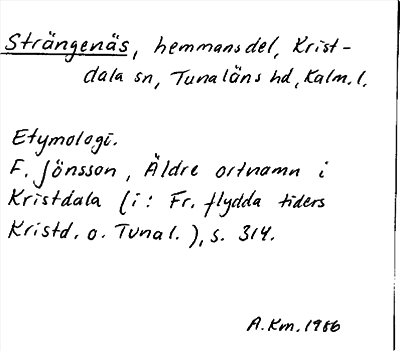 Strängenäs, hemmansdel, Krist-
dala sn, Tunaläns hd, Kalm. l.
Etymologi.
F. Jönsson, Äldre ortnamn i
Kristdala (i: Fr. flydda tiders
Kristd. o. Tunal.), s. 314.
A. Km. 1986